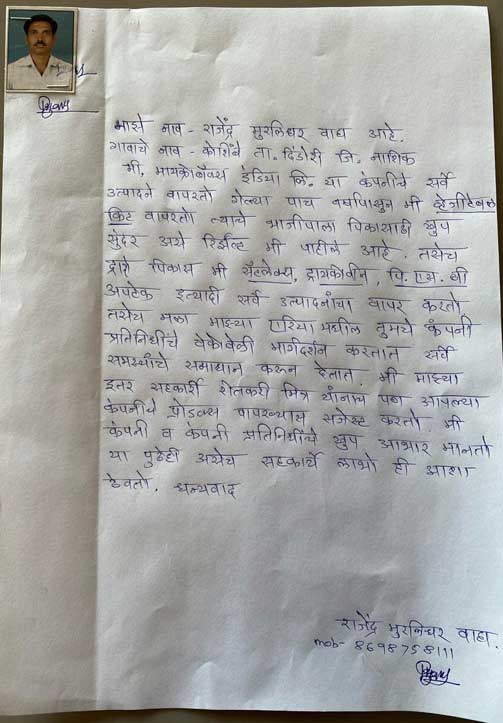 माझे नाव - राजेंद्र मुरलिधर वाघ आहे.
गावाचे नाव - कोशिंबे ता. दिंडोरी जि. नाशिक
मी, मायक्रोबॅक्स इंडिया लि. या कंपनीचे सर्व
उत्पादने वापरतो गेल्या पाच वर्षापासुन मी व्हेजीटेबल
किट वापरतो त्याचे भाजीपाला पिकासाठी खुप
सुंदर असे रिझल्ट मी पाहीले आहे. तसेच
द्राक्षे पिकास मी सॅलमॅक्स, ट्रायकोवीन, पि. एस. बी
अपटेक इत्यादी सर्व उत्पादनांचा वापर करतो
तसेच मला माझ्या एरिया मधील तुमचे कंपनी
प्रतिनिधींचे वेळोवेळी मार्गदर्शन करतात सर्व
समस्यांचे समाधान करून देतात. मी माझ्या
इतर सहकारी शेतकरी मित्र यांनाच पण आपल्या
कंपनीचे प्रोडक्ट वापरण्यास सजेस्ट करतो. मी
कंपनी व कंपनी प्रतिनिधींचे खुप आभार मानतो
या पुढेही असेच सहकार्य लाभो ही आशा
ठेवतो. धन्यवाद
राजेंद्र मुरलिधर वाघ.
mob- 8698758111